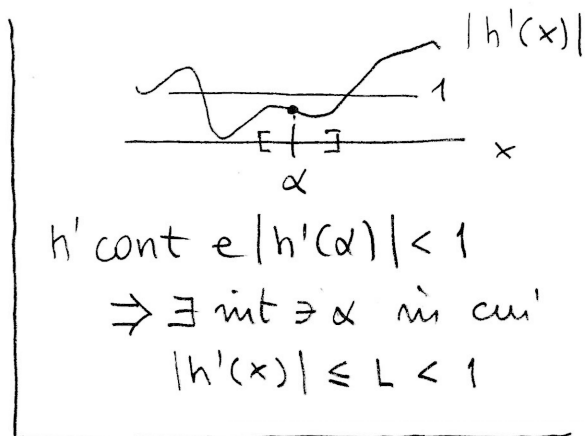 |h'(x)|
1
x
α
h' cont e |h'(α)| < 1
⇒ ∃ int ∋ α in cui
|h'(x)| ≤ L < 1